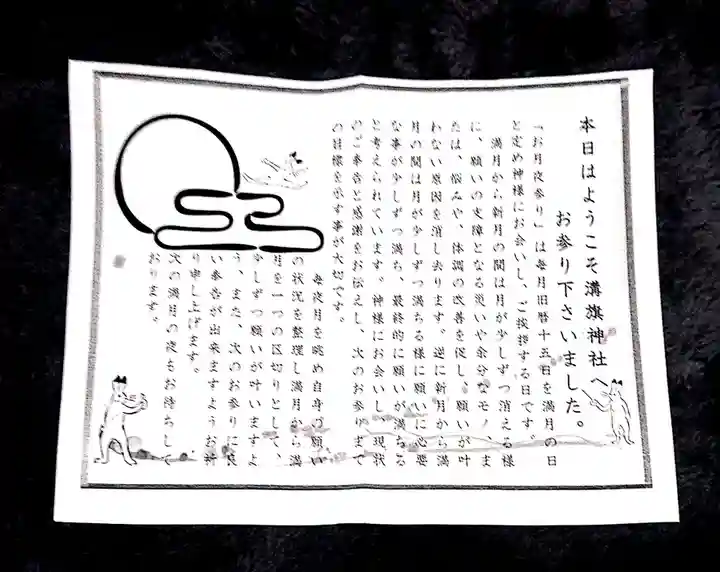 本日はようこそ溝旗神社へ
お参り下さいました。
「お月夜参り」は毎月旧暦十五日を満月の日
と定め神様にお会いし、ご挨拶する日です。
満月から新月の間は月が少しずつ消える様
に、願いの支障となる災いや余分なモノ、ま
たは、悩みや、体調の改善を促し、願いが叶
わない原因を消し去ります。逆に新月から満
月の間は月が少しずつ満ちる様に願いに必要
な事が少しずつ満ち、最終的に願いが満ちる
と考えられています。神様にお会いし、現状
のご奉告と感謝をお伝えし、次のお参りまで
の目標を示す事が大切です。
毎夜月を眺め自身の願い
の状況を整理し満月から満
月を一つの区切りとして、
少しずつ願いが叶いますよ
う、また、次のお参りに良
い奉告が出来ますようお祈
り申し上げます。
次の満月の夜もお待ちして
おります。